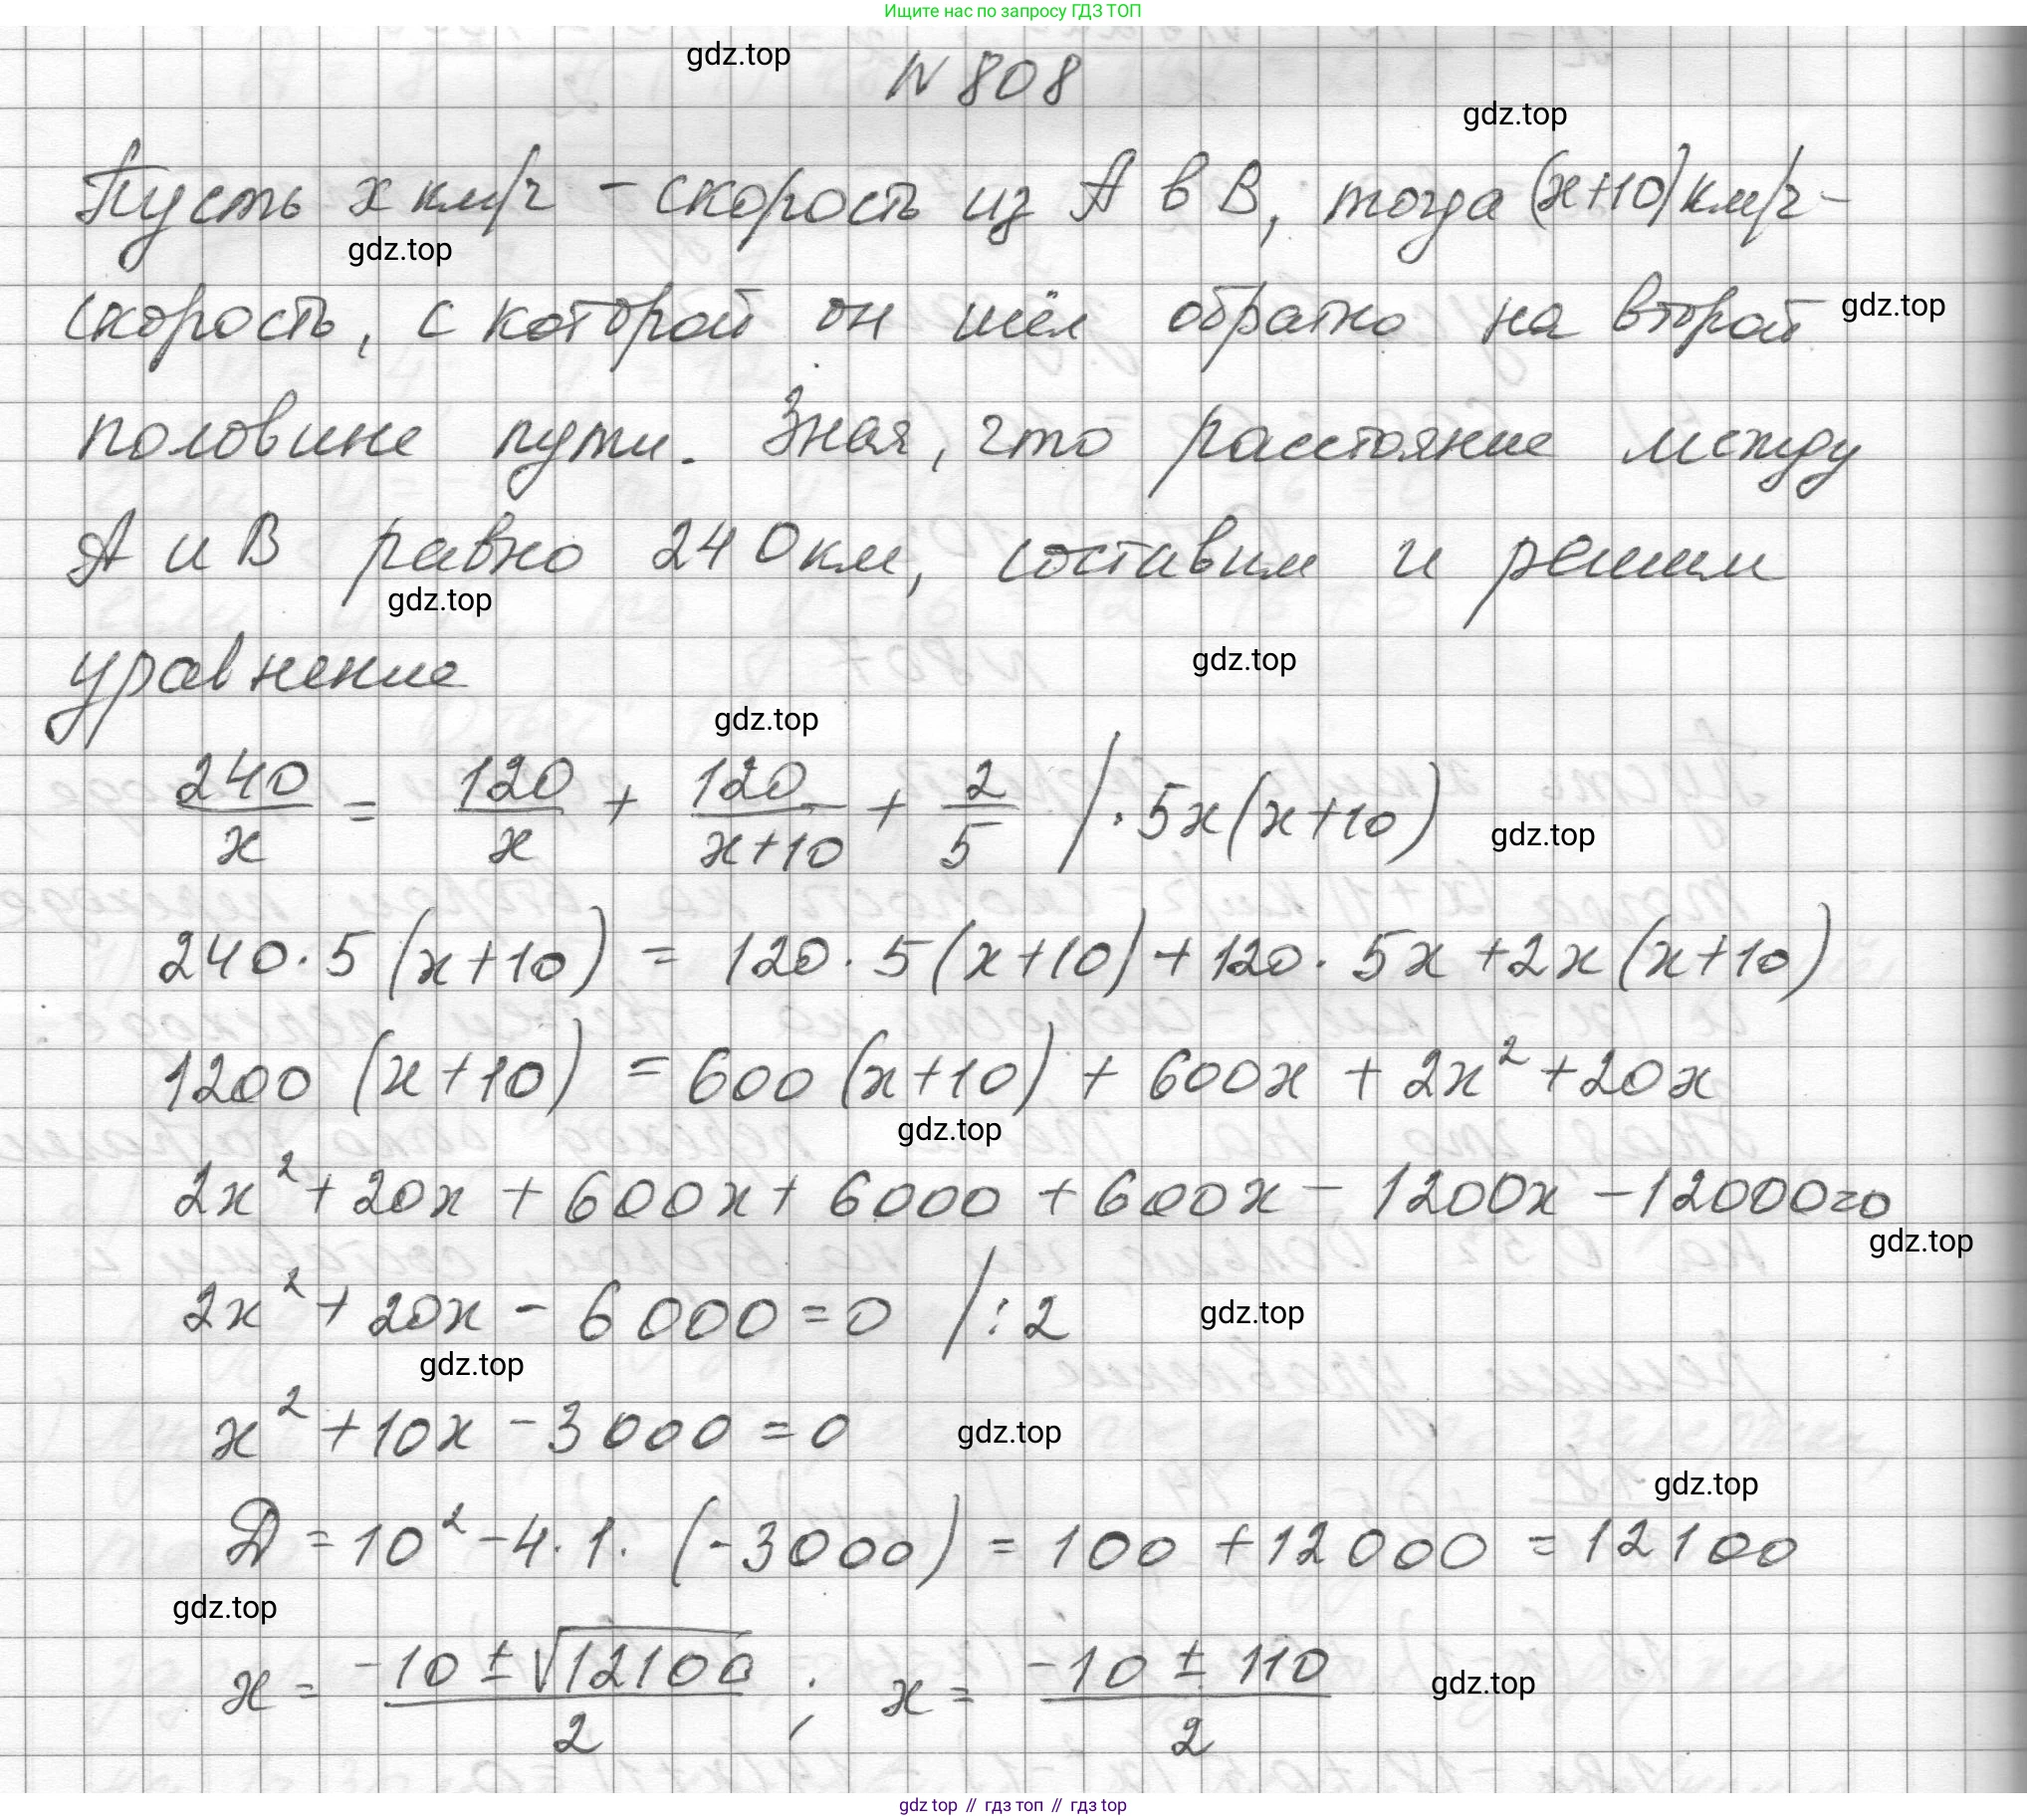 Ищите нас по запросу ГДЗ ТОП
gdz.top
N 808
gdz.top
Пусть x км/ч - скорость из А в В, тогда (x+10) км/ч -
gdz.top
скорость, с которой он шёл обратно на второй
gdz.top
половине пути. Зная, что расстояние между
А и В равно 240 км, составим и решим
gdz.top
уравнение
gdz.top
gdz.top
240/x = 120/x + 120/(x+10) + 2/5 /·5x(x+10)
gdz.top
240·5(x+10) = 120·5(x+10)+120·5x+2x(x+10)
1200(x+10) = 600(x+10)+600x+2x²+20x
gdz.top
2x²+20x+600x+6000+600x-1200x-12000=0
gdz.top
2x²+20x-6000=0 /:2
gdz.top
gdz.top
x²+10x-3000=0
gdz.top
gdz.top
D=10²-4·1·(-3000)=100+12000=12100
gdz.top
x = (-10±√12100)/2 ; x = (-10±110)/2
gdz.top
gdz top // гдз топ // гдз top